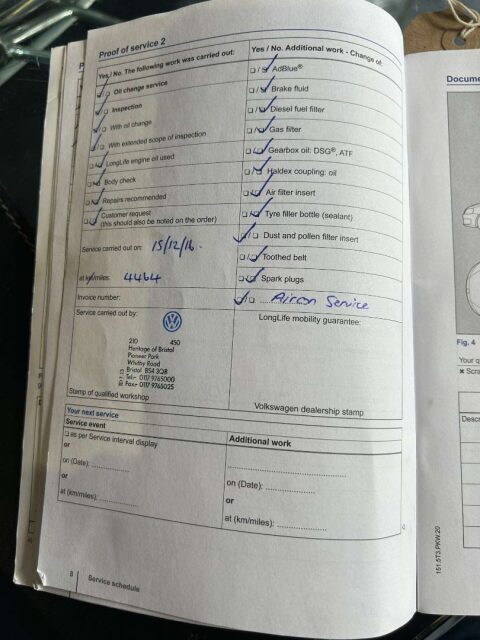 Proof of service 2
Yes / No. The following work was carried out:
Oil change service
Inspection
With oil change
With extended scope of inspection
LongLife engine oil used
Body check
Repairs recommended
Customer request
(this should also be noted on the order)
Service carried out on: 15/12/16.
at km/miles: 4464
Invoice number:
Service carried out by:
210 450
Heritage of Bristol
Pioneer Park
Whitby Road
Bristol BS4 3QB
Tel: 0117 9765000
Fax: 0117 9765025
Stamp of qualified workshop
Yes / No. Additional work - Change of:
AdBlue®
Brake fluid
Diesel fuel filter
Gas filter
Gearbox oil: DSG®, ATF
Haldex coupling: oil
Air filter insert
Tyre filler bottle (sealant)
Dust and pollen filter insert
Toothed belt
Spark plugs
Aircon Service
LongLife mobility guarantee:
Volkswagen dealership stamp
Your next service
Service event
as per Service interval display
or
on (Date):
or
at (km/miles):
Additional work
on (Date):
or
at (km/miles):
8 Service schedule
Docume
Fig. 4
Your q
Scra
Descr
151.5T3.PKW.20